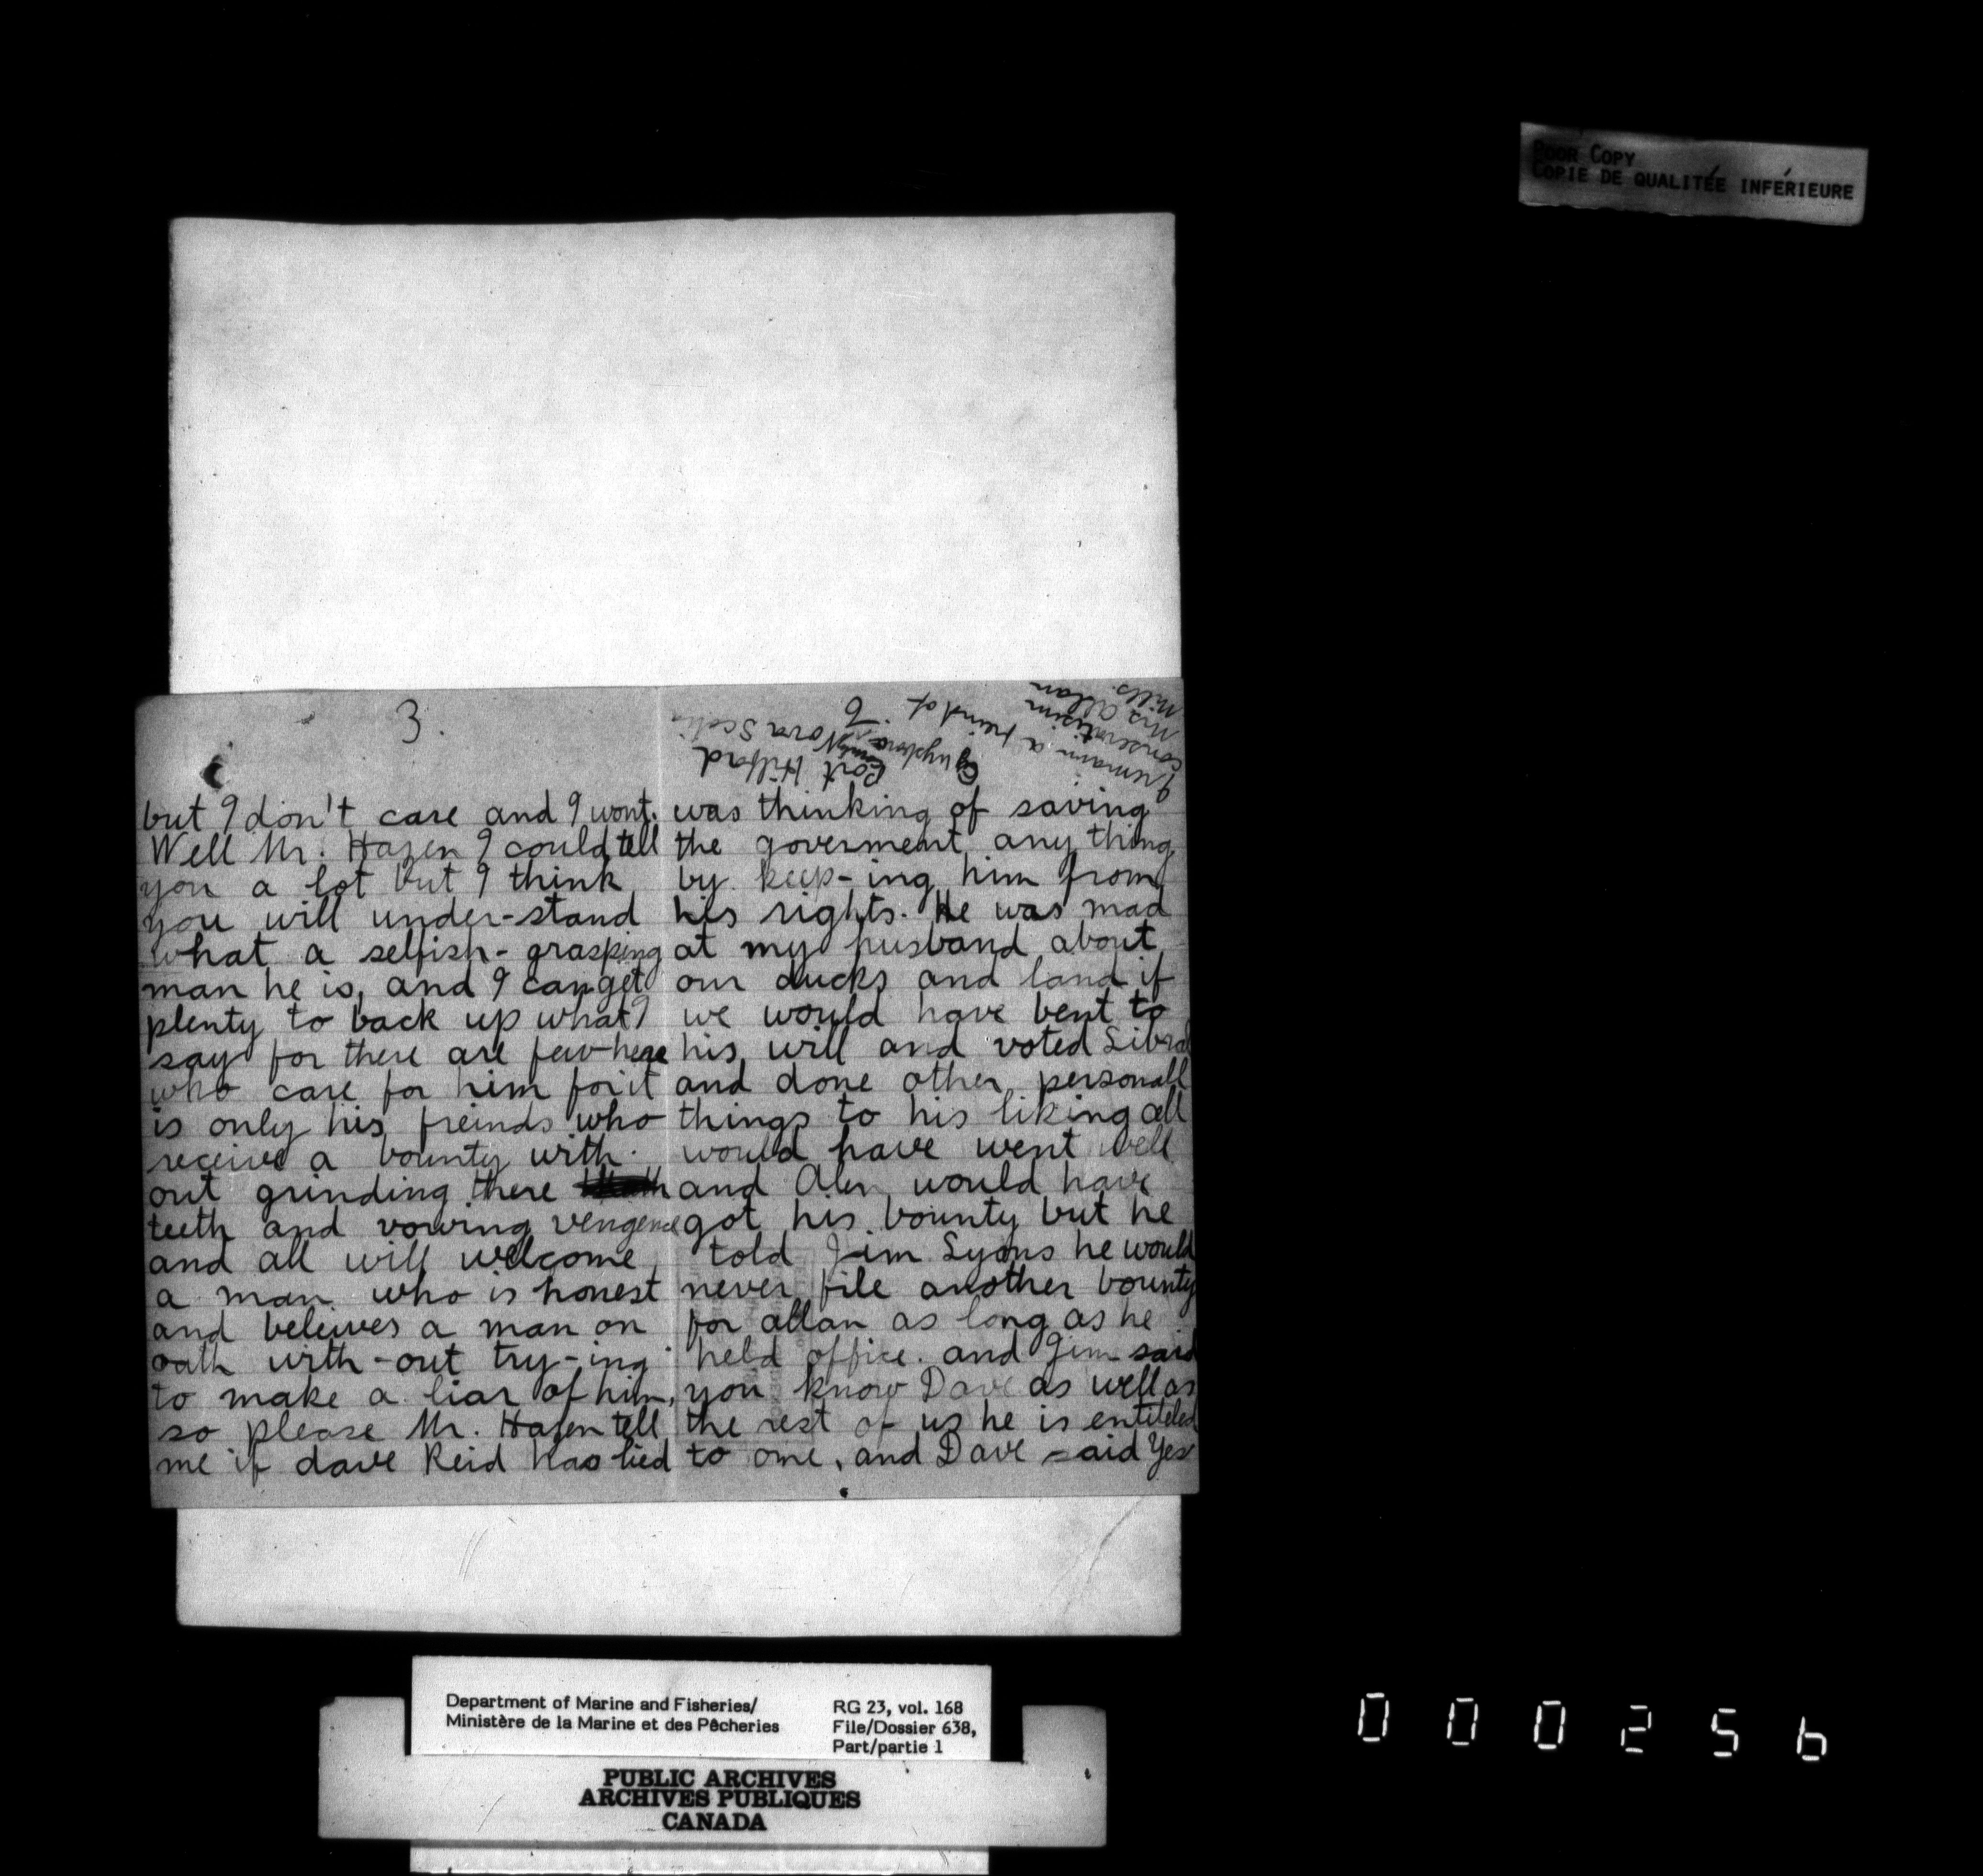 POOR COPY
COPIE DE QUALITÉE INFÉRIEURE
3.
but I don't care and I wont.
Well Mr. Hazen I could tell
you a lot but I think
you will under-stand
what a selfish-grasping
man he is, and I can get
plenty to back up what I
say for there are few here
who care for him for it
is only his freinds who
receive a bounty with-
out grinding there
teeth and vowing vengence
and all will welcome
a man who is honest
and beleives a man on
oath with-out try-ing
to make a liar of him,
so please Mr. Hazen tell
me if dave Reid has lied
6
I remain a freind of
conservatisim
Mrs Allan
Mills.
Port Hilford
Guysboro
County Nova Scotia
was thinking of saving
the goverment any thing
by keep-ing him from
his rights. He was mad
at my husband about
our ducks and land if
we would have bent to
his will and voted Libral
and done other personall
things to his liking all
would have went well
and Alen would have
got his bounty but he
told Jim Lyons he would
never file another bounty
for allan as long as he
held office. and Jim said
you know Dave as well as
the rest of us he is entiteled
to one, and Dave said Yes
Department of Marine and Fisheries/
Ministère de la Marine et des Pêcheries
RG 23, vol. 168
File/Dossier 638,
Part/partie 1
PUBLIC ARCHIVES
ARCHIVES PUBLIQUES
CANADA
000256